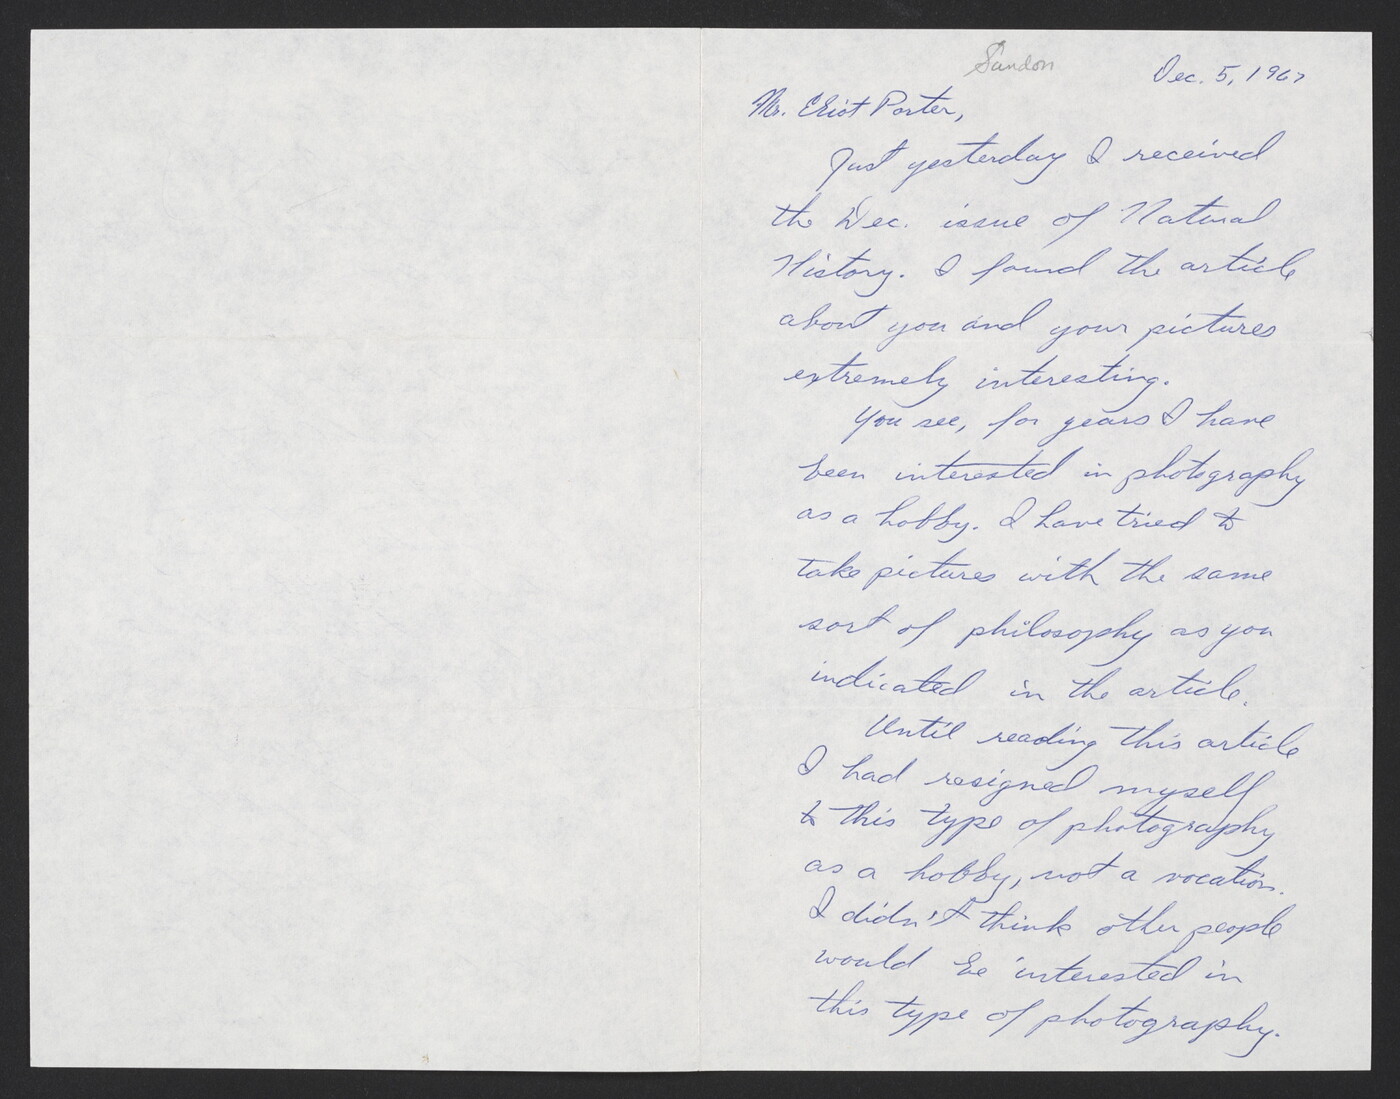 Sandon
Dec. 5, 1967
Mr. Eliot Porter,
Just yesterday I received
the Dec. issue of Natural
History. I found the article
about you and your pictures
extremely interesting.
You see, for years I have
been interested in photography
as a hobby. I have tried to
take pictures with the same
sort of philosophy as you
indicated in the article.
Until reading this article
I had resigned myself
to this type of photography
as a hobby, not a vocation.
I didn't think other people
would be interested in
this type of photography.